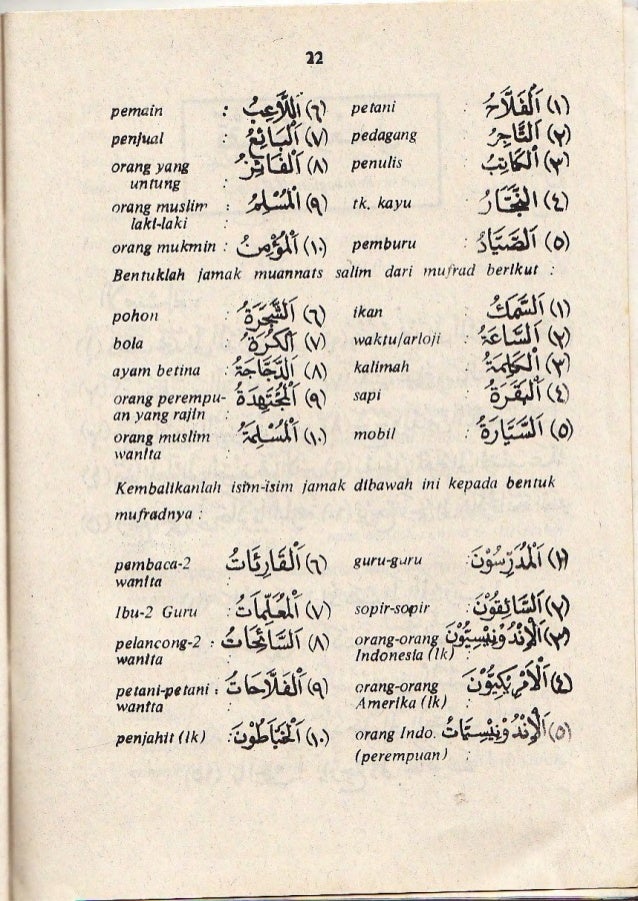 22
(١) اَلْفَلَّاحُ : petani (٦) اَللَّاعِبُ : pemain
(٢) اَلتَّاجِرُ : pedagang (٧) اَلْبَائِعُ : penjual
(٣) اَلْكَاتِبُ : penulis (٨) اَلْفَائِزُ : orang yang
untung
(٤) اَلنَّجَّارُ : tk. kayu (٩) اَلْمُسْلِمُ : orang muslim
laki-laki
(٥) اَلصَّيَّادُ : pemburu (١٠) اَلْمُؤْمِنُ : orang mukmin
Bentuklah jamak muannats salim dari mufrad berikut :
(١) اَلسَّمَكُ : ikan (٦) اَلشَّجَرَةُ : pohon
(٢) اَلسَّاعَةُ : waktu/arloji (٧) اَلْكُرَةُ : bola
(٣) اَلْكَلِمَةُ : kalimah (٨) اَلدَّجَاجَةُ : ayam betina
(٤) اَلْبَقَرَةُ : sapi (٩) اَلْمُجْتَهِدَةُ : orang perempu-
an yang rajin
(٥) اَلسَّيَّارَةُ : mobil (١٠) اَلْمُسْلِمَةُ : orang muslim
wanita
Kembalikanlah isim-isim jamak dibawah ini kepada bentuk
mufradnya :
(١) اَلْمُدَرِّسُوْنَ : guru-guru (٦) اَلْقَارِئَاتُ : pembaca-2
wanita
(٢) اَلسَّائِقُوْنَ : sopir-sopir (٧) اَلْمُعَلِّمَاتُ : Ibu-2 Guru
(٣) اَلْإِنْدُوْنِيْسِيُّوْنَ : orang-orang (٨) اَلسَّائِحَاتُ : pelancong-2
Indonesia (lk) wanita
(٤) اَلْأَمْرِيْكِيُّوْنَ : orang-orang (٩) اَلْفَلَّاحَاتُ : petani-petani
Amerika (lk) wanita
(٥) اَلْإِنْدُوْنِيْسِيَّاتُ : orang Indo. (١٠) اَلْخَيَّاطُوْنَ : penjahit (lk)
(perempuan)